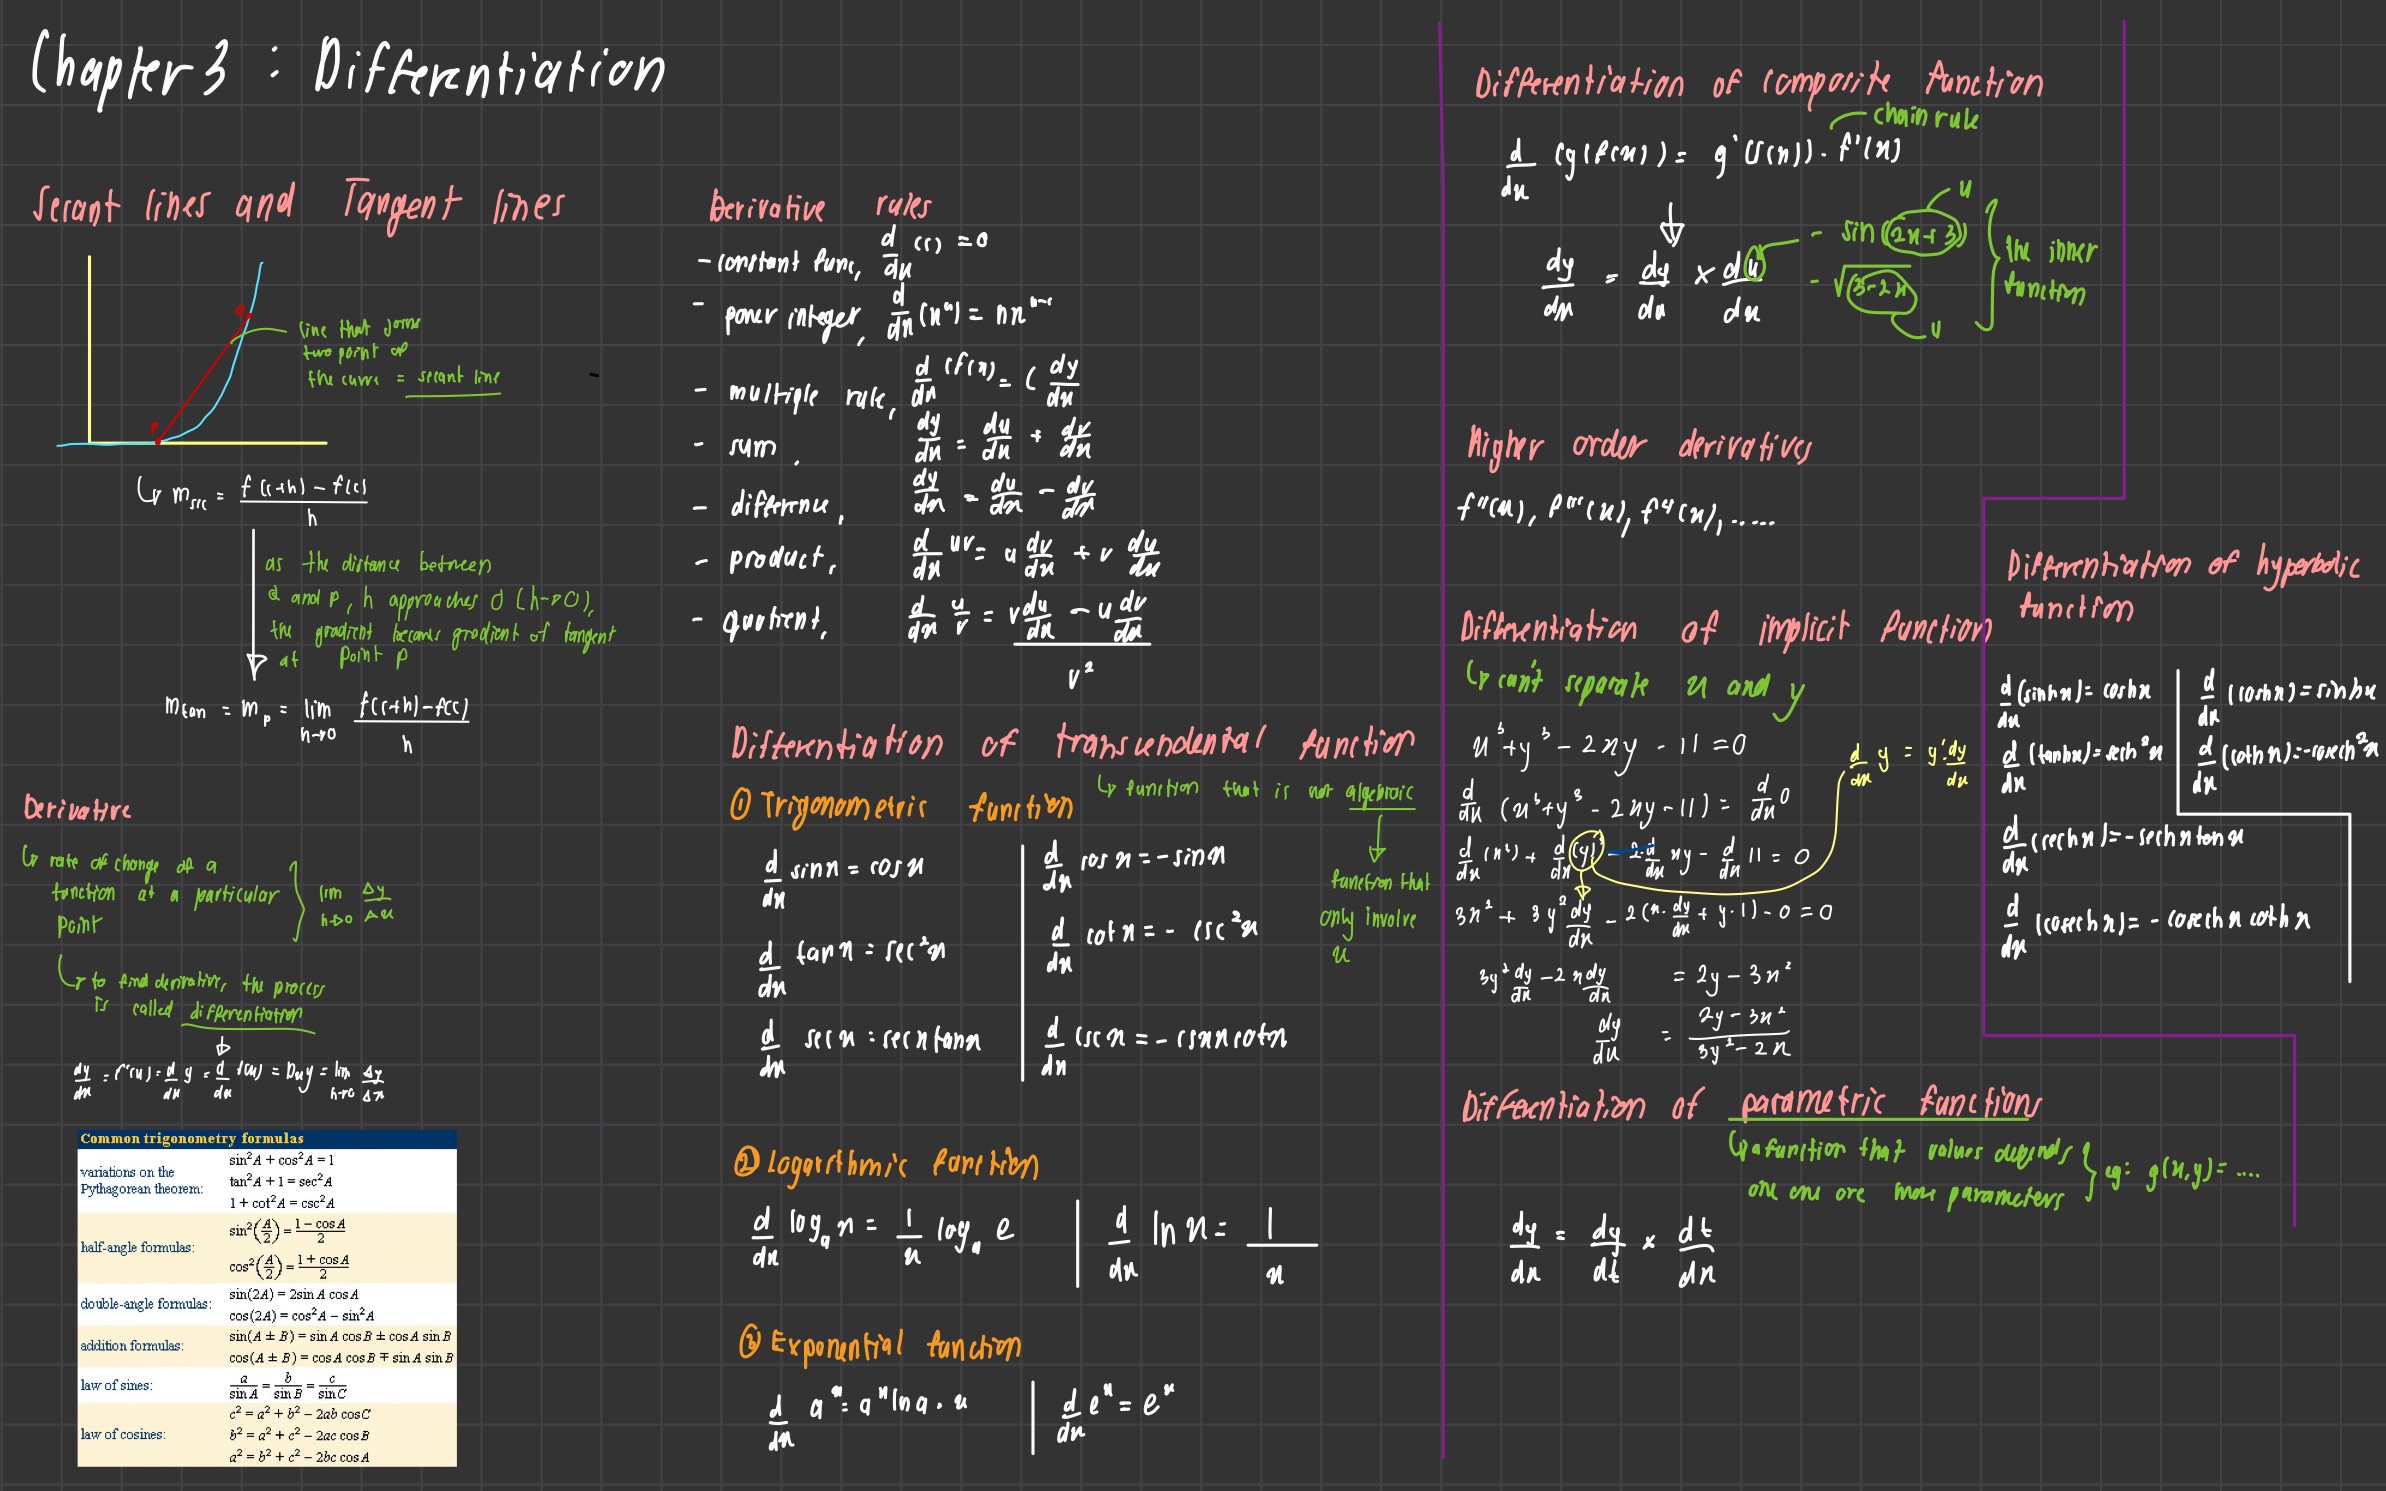 Chapter 3 : Differentiation
Secant lines and Tangent lines
Q
line that joins
two point of
the curve = secant line
P
m_sec = (f(c+h) - f(c)) / h
as the distance between
Q and P, h approaches 0 (h→0),
the gradient becomes gradient of tangent
at point P
m_tan = m_p = lim h→0 (f(c+h) - f(c)) / h
Derivative
rate of change of a
function at a particular
point
lim h→0 Δy/Δx
to find derivative, the process
is called differentiation
dy/dx = f'(x) = d/dx y = d/dx f(x) = Dxy = lim h→0 Δy/Δx
Common trigonometry formulas
variations on the
Pythagorean theorem:
sin²A + cos²A = 1
tan²A + 1 = sec²A
1 + cot²A = csc²A
half-angle formulas:
sin²(A/2) = (1 - cosA)/2
cos²(A/2) = (1 + cosA)/2
double-angle formulas:
sin(2A) = 2sinA cosA
cos(2A) = cos²A - sin²A
addition formulas:
sin(A ± B) = sinA cosB ± cosA sinB
cos(A ± B) = cosA cosB ∓ sinA sinB
law of sines:
a/sinA = b/sinB = c/sinC
law of cosines:
c² = a² + b² - 2ab cosC
b² = a² + c² - 2ac cosB
a² = b² + c² - 2bc cosA
Derivative rules
- constant func, d/dx (c) = 0
- power integer, d/dx (xⁿ) = nxⁿ⁻¹
- multiple rule, d/dx cf(x) = c dy/dx
- sum, dy/dx = du/dx + dv/dx
- difference, dy/dx = du/dx - dv/dx
- product, d/dx uv = u dv/dx + v du/dx
- quotient, d/dx u/v = (v du/dx - u dv/dx) / v²
Differentiation of transcendental function
function that is not algebraic
function that
only involve
x
① Trigonometric function
d/dx sinx = cosx
d/dx cosx = -sinx
d/dx tanx = sec²x
d/dx cotx = - csc²x
d/dx secx = secxtanx
d/dx cscx = - cscxcotx
② Logarithmic function
d/dx logₐx = 1/x logₐ e
d/dx lnx = 1/x
③ Exponential function
d/dx aˣ = aˣ lna · x
d/dx eˣ = eˣ
Differentiation of composite function
chain rule
d/dx (g(f(x)) = g'(f(x)) · f'(x)
dy/dx = dy/du × du/dx
u
- sin(2x+3)
- √(3-2x)
u
the inner
function
Higher order derivatives
f''(x), f'''(x), f⁴(x), .....
Differentiation of implicit function
can't separate x and y
x³+y³ - 2xy - 11 = 0
d/dx (x³+y³ - 2xy - 11) = d/dx 0
d/dx (x³) + d/dx (y)³ - 2·d/dx xy - d/dx 11 = 0
d/dx y = y'·dy/dx
3x² + 3y² dy/dx - 2(x·dy/dx + y·1) - 0 = 0
3y² dy/dx - 2x dy/dx = 2y - 3x²
dy/dx = (2y - 3x²) / (3y² - 2x)
Differentiation of parametric functions
a function that values depends
one one ore more parameters
eg: g(x,y) = ....
dy/dx = dy/dt × dt/dx
Differentiation of hyperbolic
function
d/dx (sinhx) = coshx
d/dx (coshx) = sinhx
d/dx (tanhx) = sech²x
d/dx (cothx) = -cosech²x
d/dx (sechx) = - sechxtanx
d/dx (cosechx) = - cosechx cothx